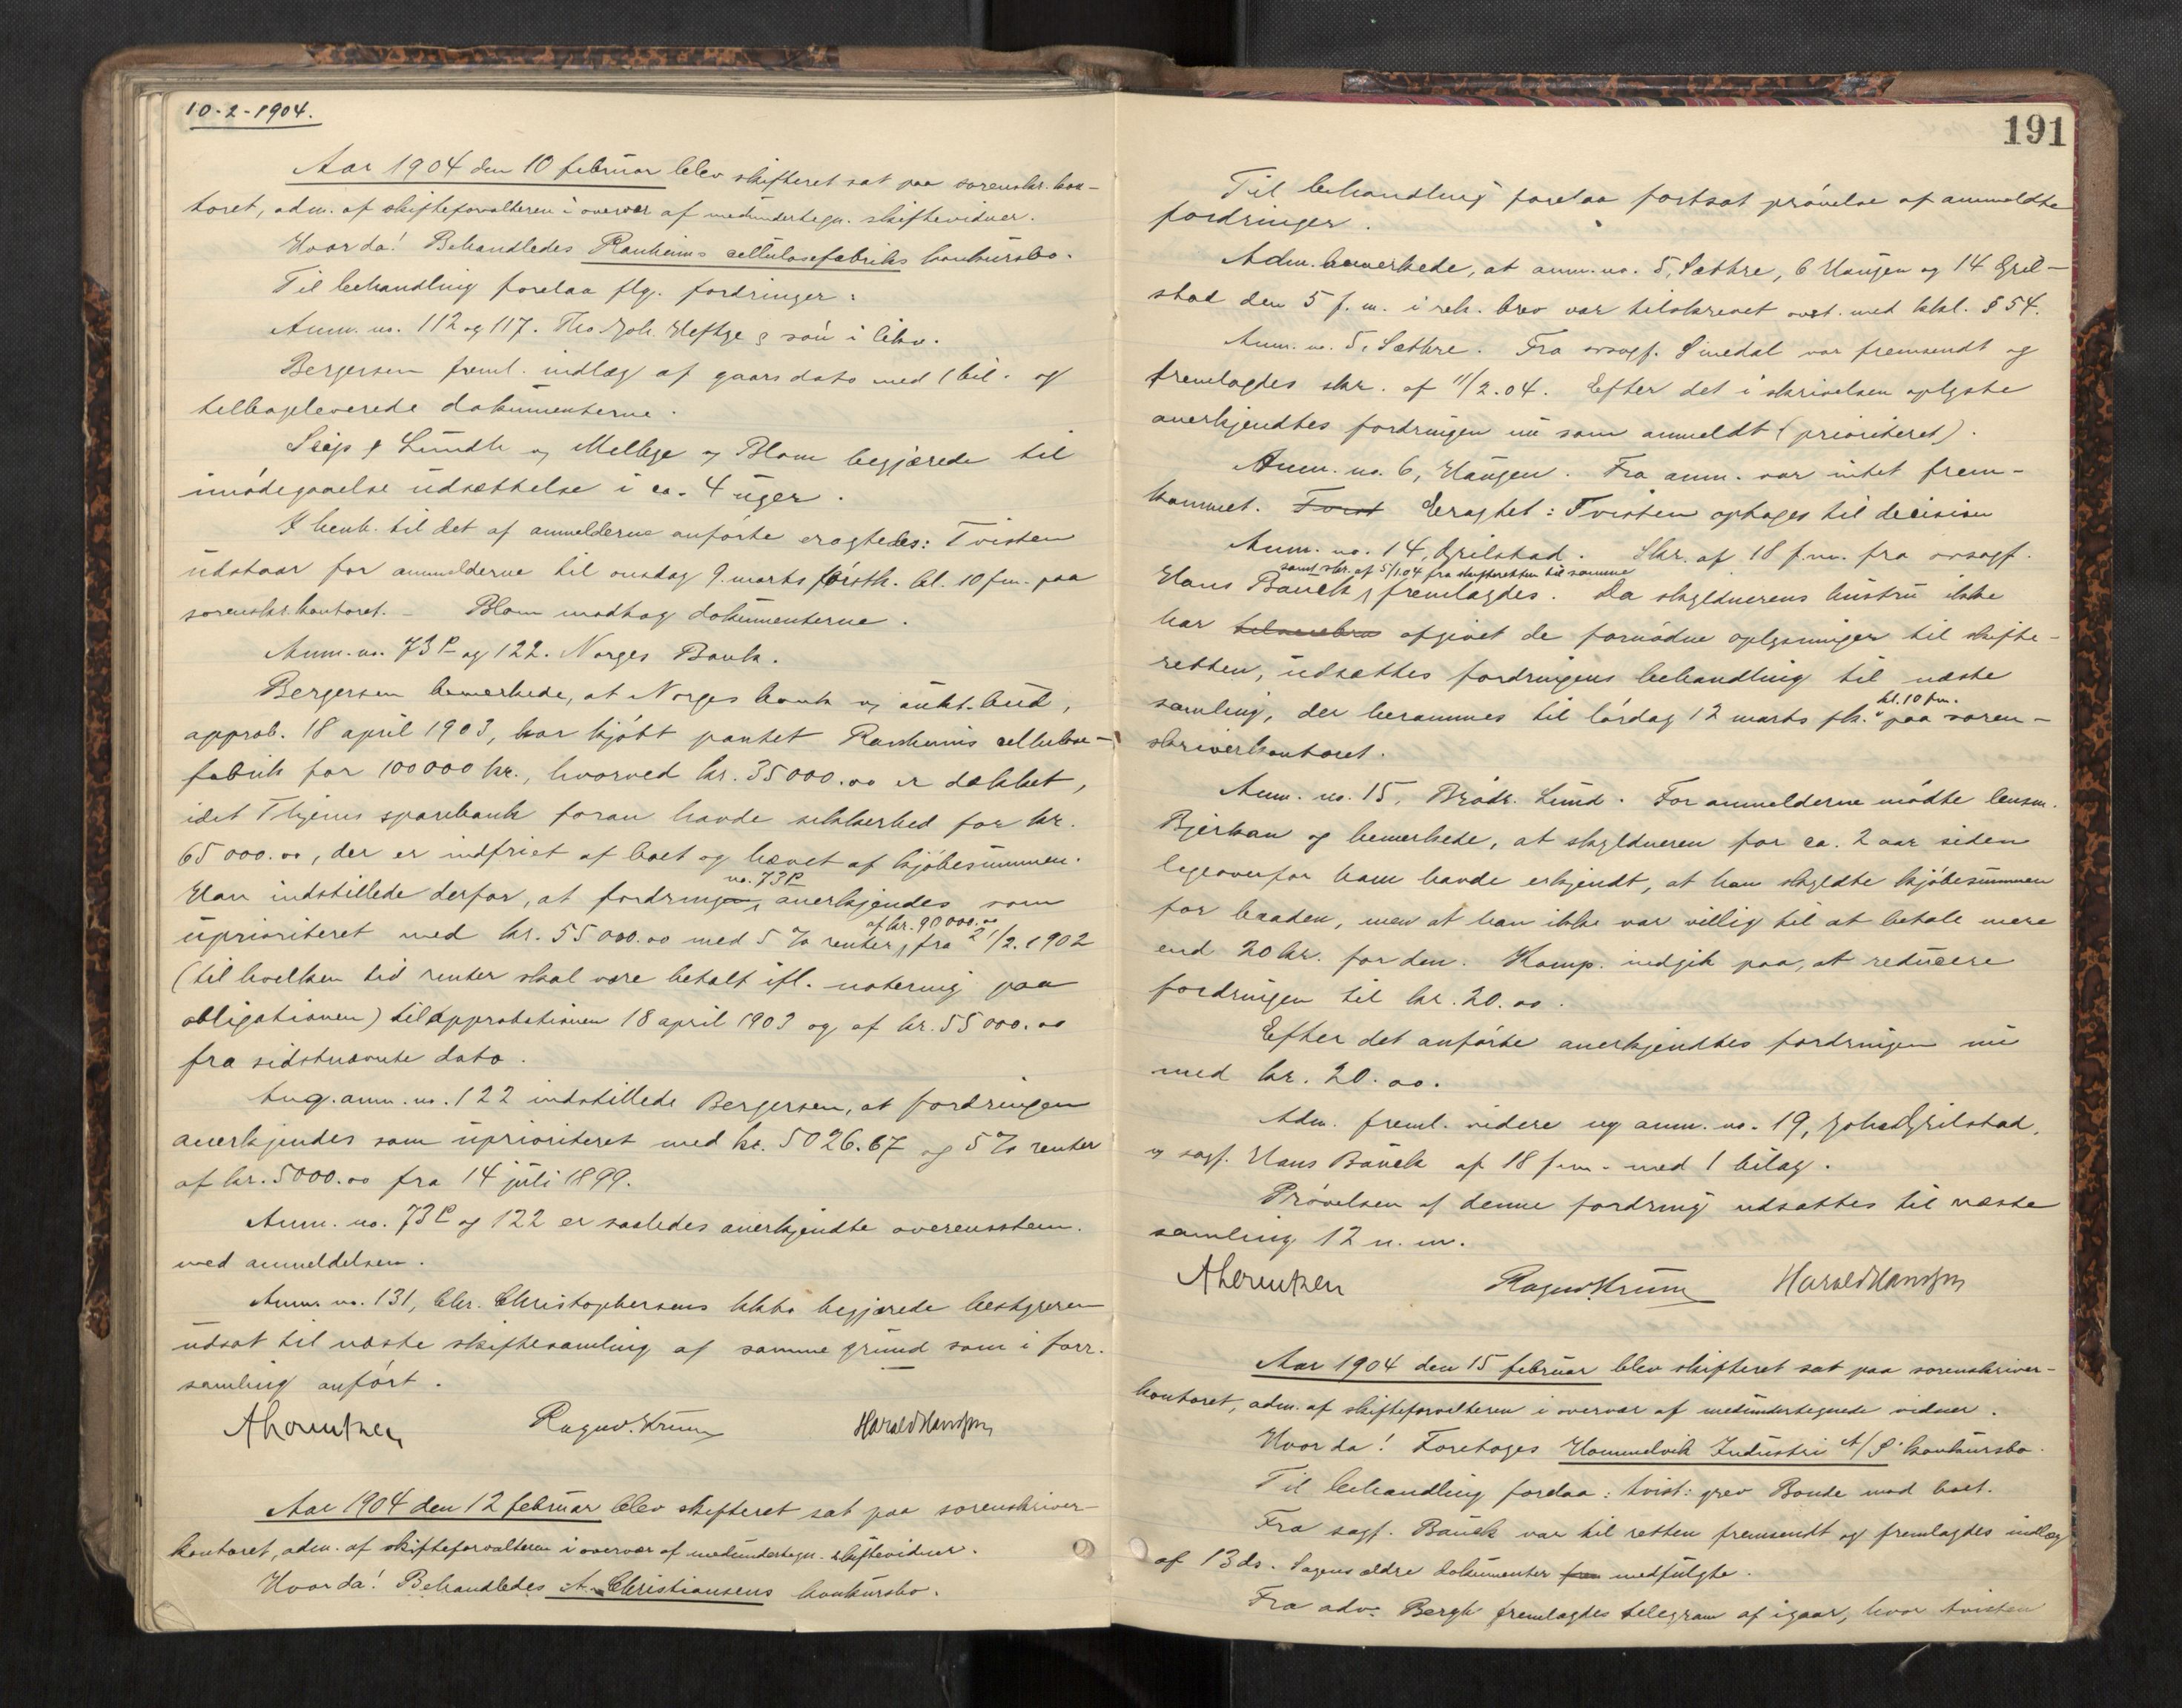 10-2-1904.
Aar 1904 den 10 februar blev skifteret sat paa sorenskr. kon-
toret, adm. af skifteforvalteren i overvær af medundertegn. skiftevidner.
Hvorda! Behandledes Ranheims cellulosefabriks konkursbo.
Til behandling forelaa flg. fordringer:
Anm. no. 112 og 117. Tho. Joh. Heftye & søn i likv.
Bergersen freml. indlæg af gaars dato med 1 bil. og
tilbageleverede dokumenterne.
Lundh og Mellbye og Blom begjærede til
imødegaaelse udsættelse i ca. 4 uger.
I henh. til det af anmelderne anførte eragtedes: Tvisten
udstaar for anmelderne til onsdag 9. marts førstk. kl. 10 fm. paa
sorenskr. kontoret. - Blom modtog dokumenterne.
Anm. no. 73 P og 122. Norges Bank.
Bergersen bemerkede, at Norges bank v. aukt. bud,
approb. 18 april 1903, har kjøbt pantet Ranheims cellulose-
fabrik for 100000 kr., hvorved kr. 35000.00 er dækket,
idet Thjems sparebank foran havde sikkerhed for kr.
65000.00, der er indfriet af boet og hævet af kjøbesummen.
no. 73 P
Han indstillede derfor, at fordringen anerkjendes som
af kr. 90000.00
uprioriteret med kr. 55000.00 med 5 % renter, fra 21/2. 1902
(til hvilken tid renter skal være betalt ifl. notering paa
obligationen) til approbationen 18 april 1903 og af kr. 55000.00
fra sidstnævnte dato.
Ang. anm. no. 122 indstillede Bergersen, at fordringen
anerkjendes som uprioriteret med kr. 5026.67 og 5 % renter
af kr. 5000.00 fra 14 juli 1899.
Anm. no. 73 P og 122 er saaledes anerkjendte overensstem.
med anmeldelsen.
Anm. no. 131, Chr. Christophersens kkbo begjærede bestyreren
udsat til næste skiftesamling af samme grund som i forr.
samling anført.
Ragnv. Krum Harald Hansson
Aar 1904 den 12 februar blev skifteret sat paa sorenskriver-
kontoret, adm. af skifteforvalteren i overvær af medundertegn. skiftevidner.
Hvorda! Behandledes A. Christiansens konkursbo.
191
Til behandling forelaa fortsat prøvelse af anmeldte
fordringer.
Adm. bemerkede, at anm. no. 5, Sæthre, 6 Haugen og 14 Gril-
stad den 5 f.m. i rek. brev var tilskrevet ovst. med kkl. § 54.
Anm. no. 5, Sæthre. Fra ovsagf. Smedal var fremsendt og
fremlagdes skr. af 11/2. 04. Efter det i skrivelsen oplyste
anerkjendtes fordringen nu som anmeldt (prioriteret).
Anm. no. 6, Haugen. Fra anm. var intet frem-
kommet. Eragtet: Tvisten optages til decision
Anm. no. 14, Grilstad. Skr. af 18 f.m. fra ovsagf.
samt skr. af 5/1.04 fra skifteretten til samme
Hans Bauck, fremlagdes. Da skyldnerens hustru ikke
har afgivet de fornødne oplysninger til skifte-
retten, udsættes fordringens behandling til næste
kl. 10 fm.
samling, der berammes til lørdag 12 marts fk. paa soren-
skriverkontoret.
Anm. no. 15, Brødr. Lund. For anmelderne mødte lensm.
Bjerkan og bemerkede, at skyldneren for ca. 2 aar siden
ligeoverfor ham havde erkjendt, at han skyldte kjøbesummen
for baaden, men at han ikke var villig til at betale mere
end 20 kr. for den. Komp. indgik paa, at reducere
fordringen til kr. 20.00.
Efter det anførte anerkjendtes fordringen nu
med kr. 20.00.
Adm. freml. videre ny anm. no. 19, Johs Grilstad,
v. sagf. Hans Bauck af 18 f.m. med 1 bilag.
Prøvelsen af denne fordring udsættes til næste
samling 12 n.m.
Ragnv. Krum Harald Hansson
Aar 1904 den 15 februar blev skifteret sat paa sorenskriver-
kontoret, adm. af skifteforvalteren i overvær af medundertegnede vidner.
Hvorda! Foretoges Hommelvik Industri A/S konkursbo.
Til behandling forelaa: tvist: grev Bonde mod boet.
Fra sagf. Bauck var til retten fremsendt og fremlagdes indlæg
af 13 ds. Sagens ældre dokumenter medfulgte.
Fra adv. Bergh fremlagdes telegram af igaar, hvor tvisten